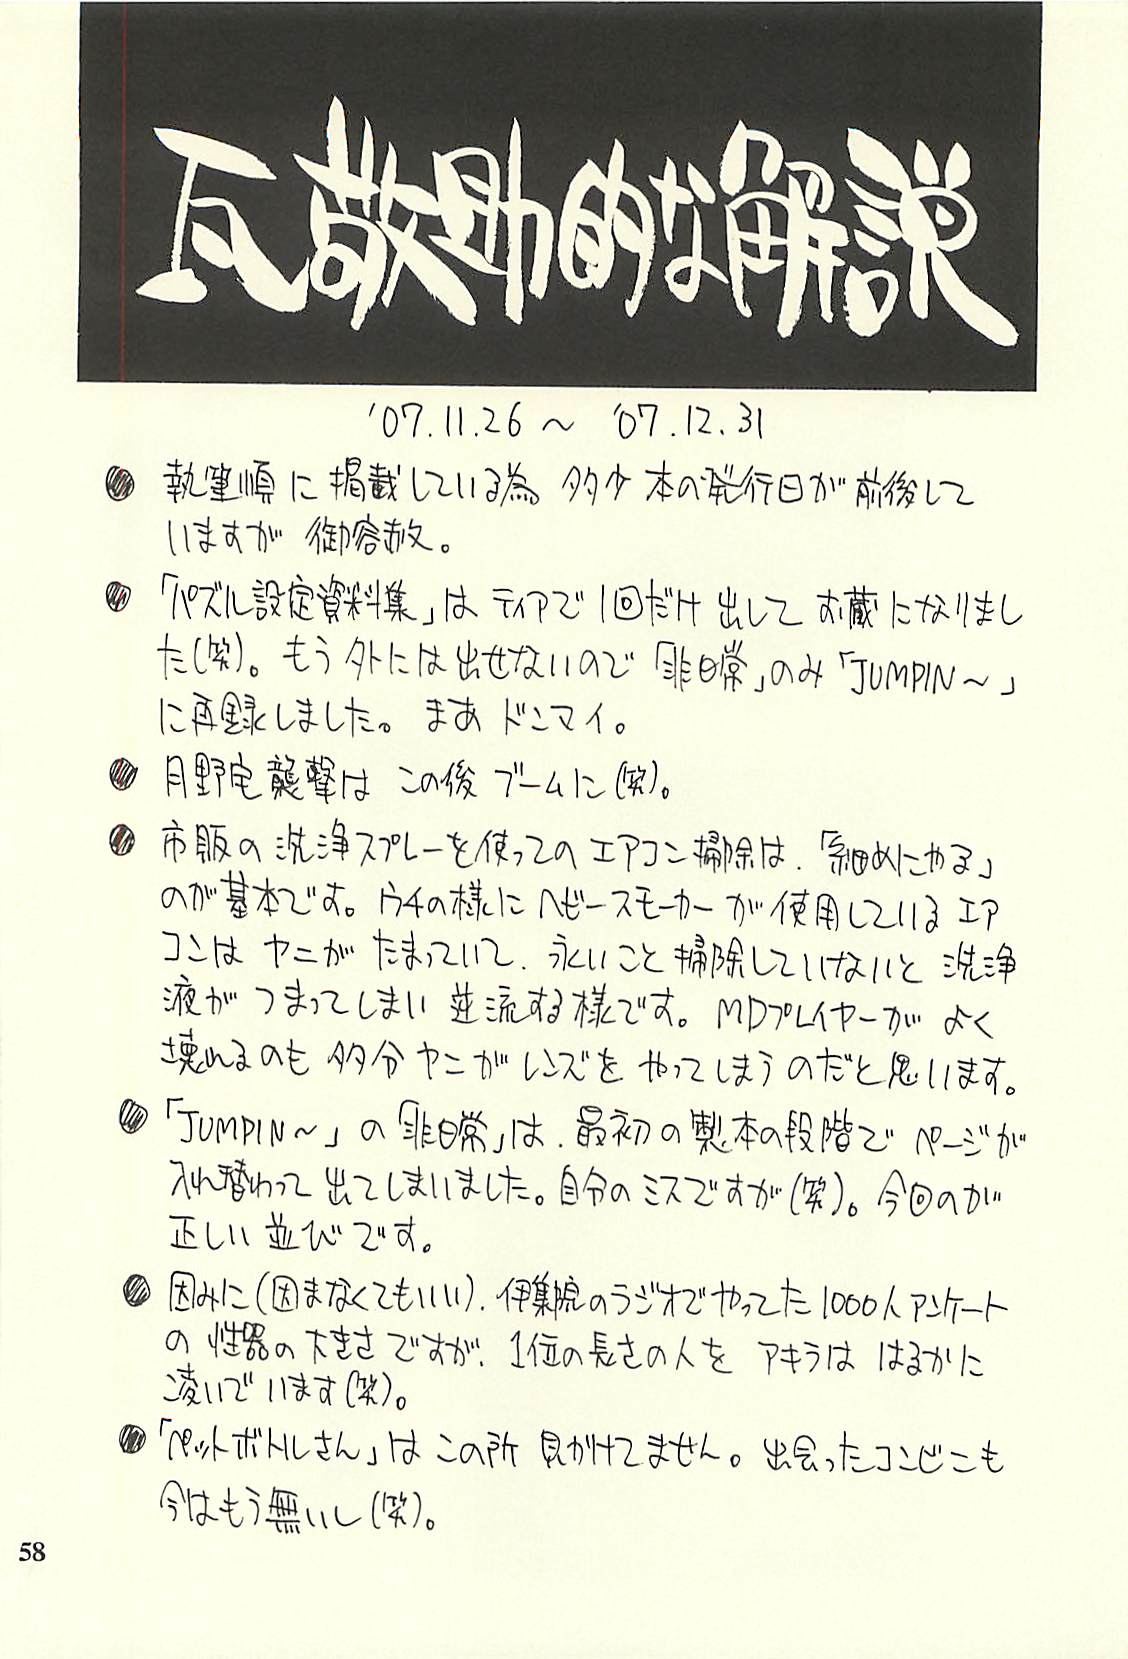 瓦敬助的な解説
'07.11.26～ '07.12.31
● 執筆順に掲載している為 多少 本の発行日が前後して
いますが 御容赦。
● 「パズル設定資料集」は ティアで1回だけ出して お蔵になりまし
た(笑)。もう外には出せないので「非日常」のみ「JUMPIN～」
に再録しました。まあ ドンマイ。
● 月野宅襲撃は この後 ブームに(笑)。
● 市販の洗浄スプレーを使ってのエアコン掃除は、「細めにやる」
のが基本です。ウチの様にヘビースモーカーが使用しているエア
コンは ヤニが たまっていて、永いこと掃除していけないと 洗浄
液が つまってしまい 逆流する様です。MDプレイヤーが よく
壊れるのも 多分ヤニが レンズを やってしまうのだと思います。
● 「JUMPIN～」の「非日常」は、最初の製本の段階で ページが
入れ替わって 出てしまいました。自分のミスですが(笑)。今回のが
正しい並びです。
● 因みに(因まなくてもいい)、伊集院のラジオでやってた1000人アンケート
の 性器の大きさですが、1位の長さの人を アキラは はるかに
凌いでいます(笑)。
● 「ペットボトルさん」は この所 見かけてません。出会ったコンビニも
今はもう無いし(笑)。
58